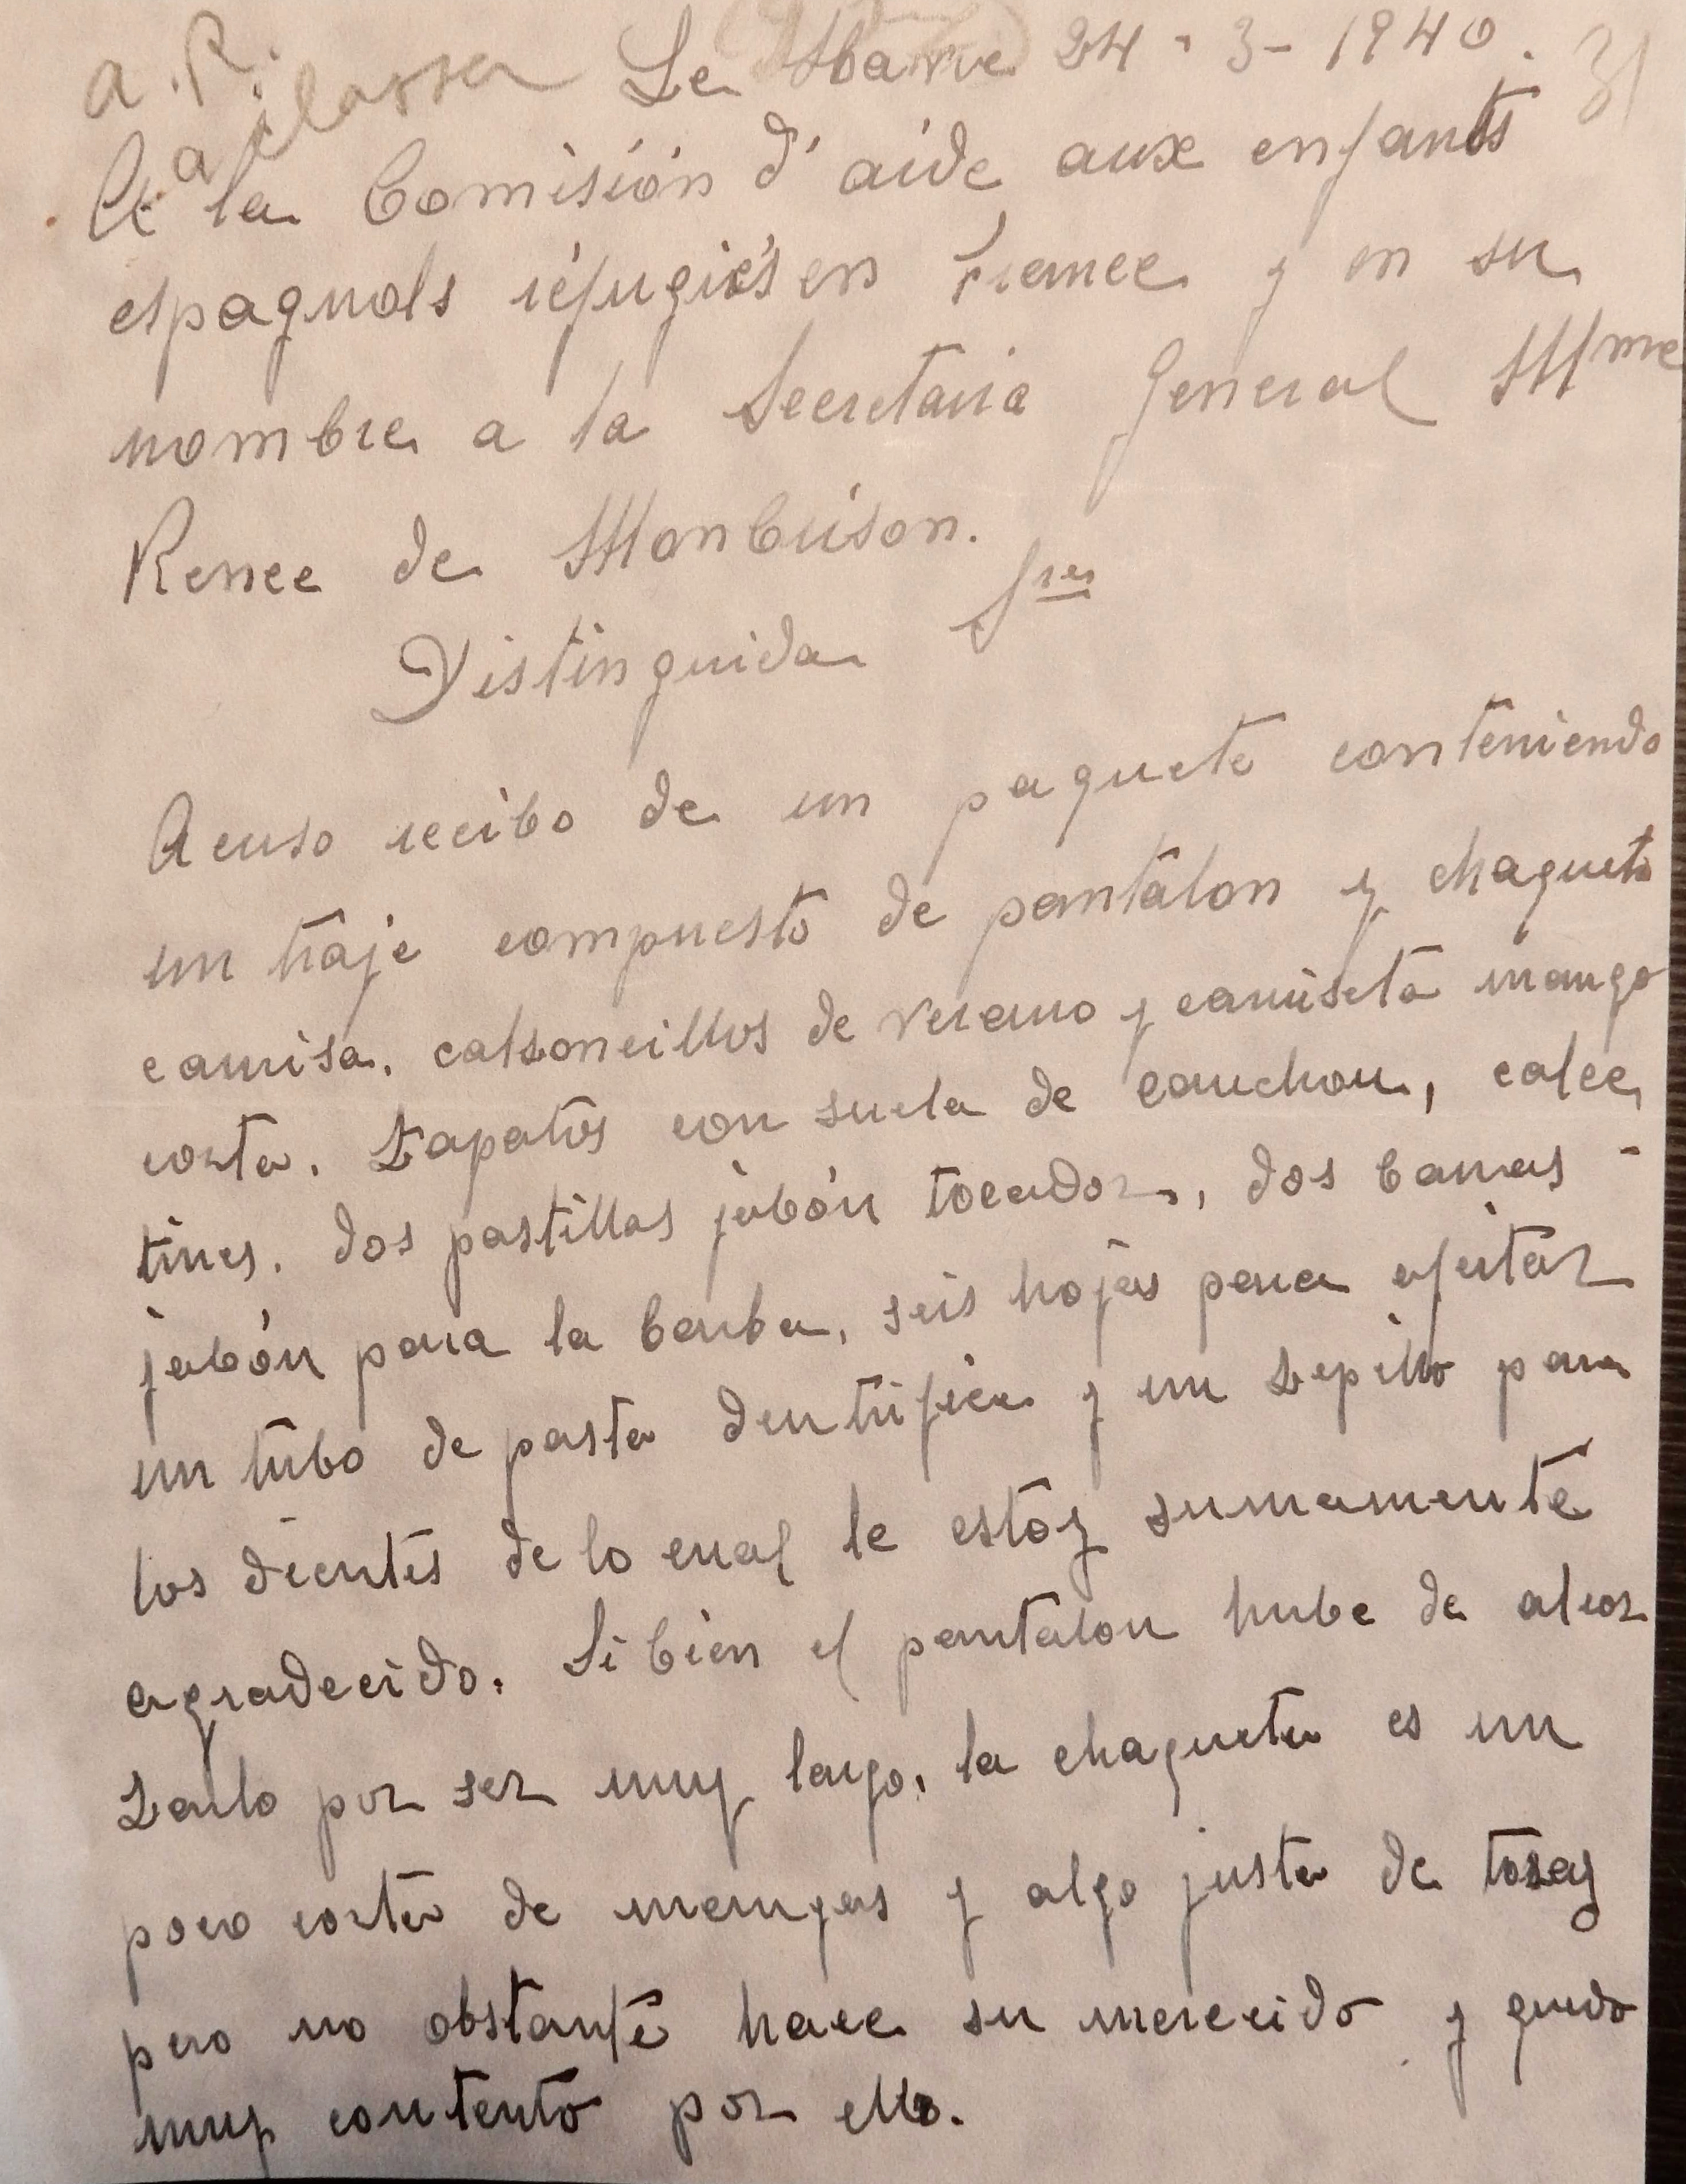 a. R.
a classer
Le Havre 24-3-1940.
A la Comisión d'aide aux enfants
espagnols réfugiés en France y en su
nombre a la Secretaria General Mme
Renee de Monbrison.
Distinguida Sra
Acuso recibo de un paquete conteniendo
un traje compuesto de pantalon y chaqueta
camisa, calsoncillos de verano y camiseta manga
corta. Zapatos con suela de cauchou, calce
tines. dos pastillas jabón tocador, dos barras -
jabón para la barba, seis hojas para afeitar
un tubo de pasta dentrifica y un zepillo para
los dientes de lo cual le estoy sumamente
agradecido. Si bien el pantalon hube de alcor
zarlo por ser muy largo, la chaqueta es un
poco corta de mangas y algo justa de
pero no obstante hace su merecido y quedo
muy contento por ello.